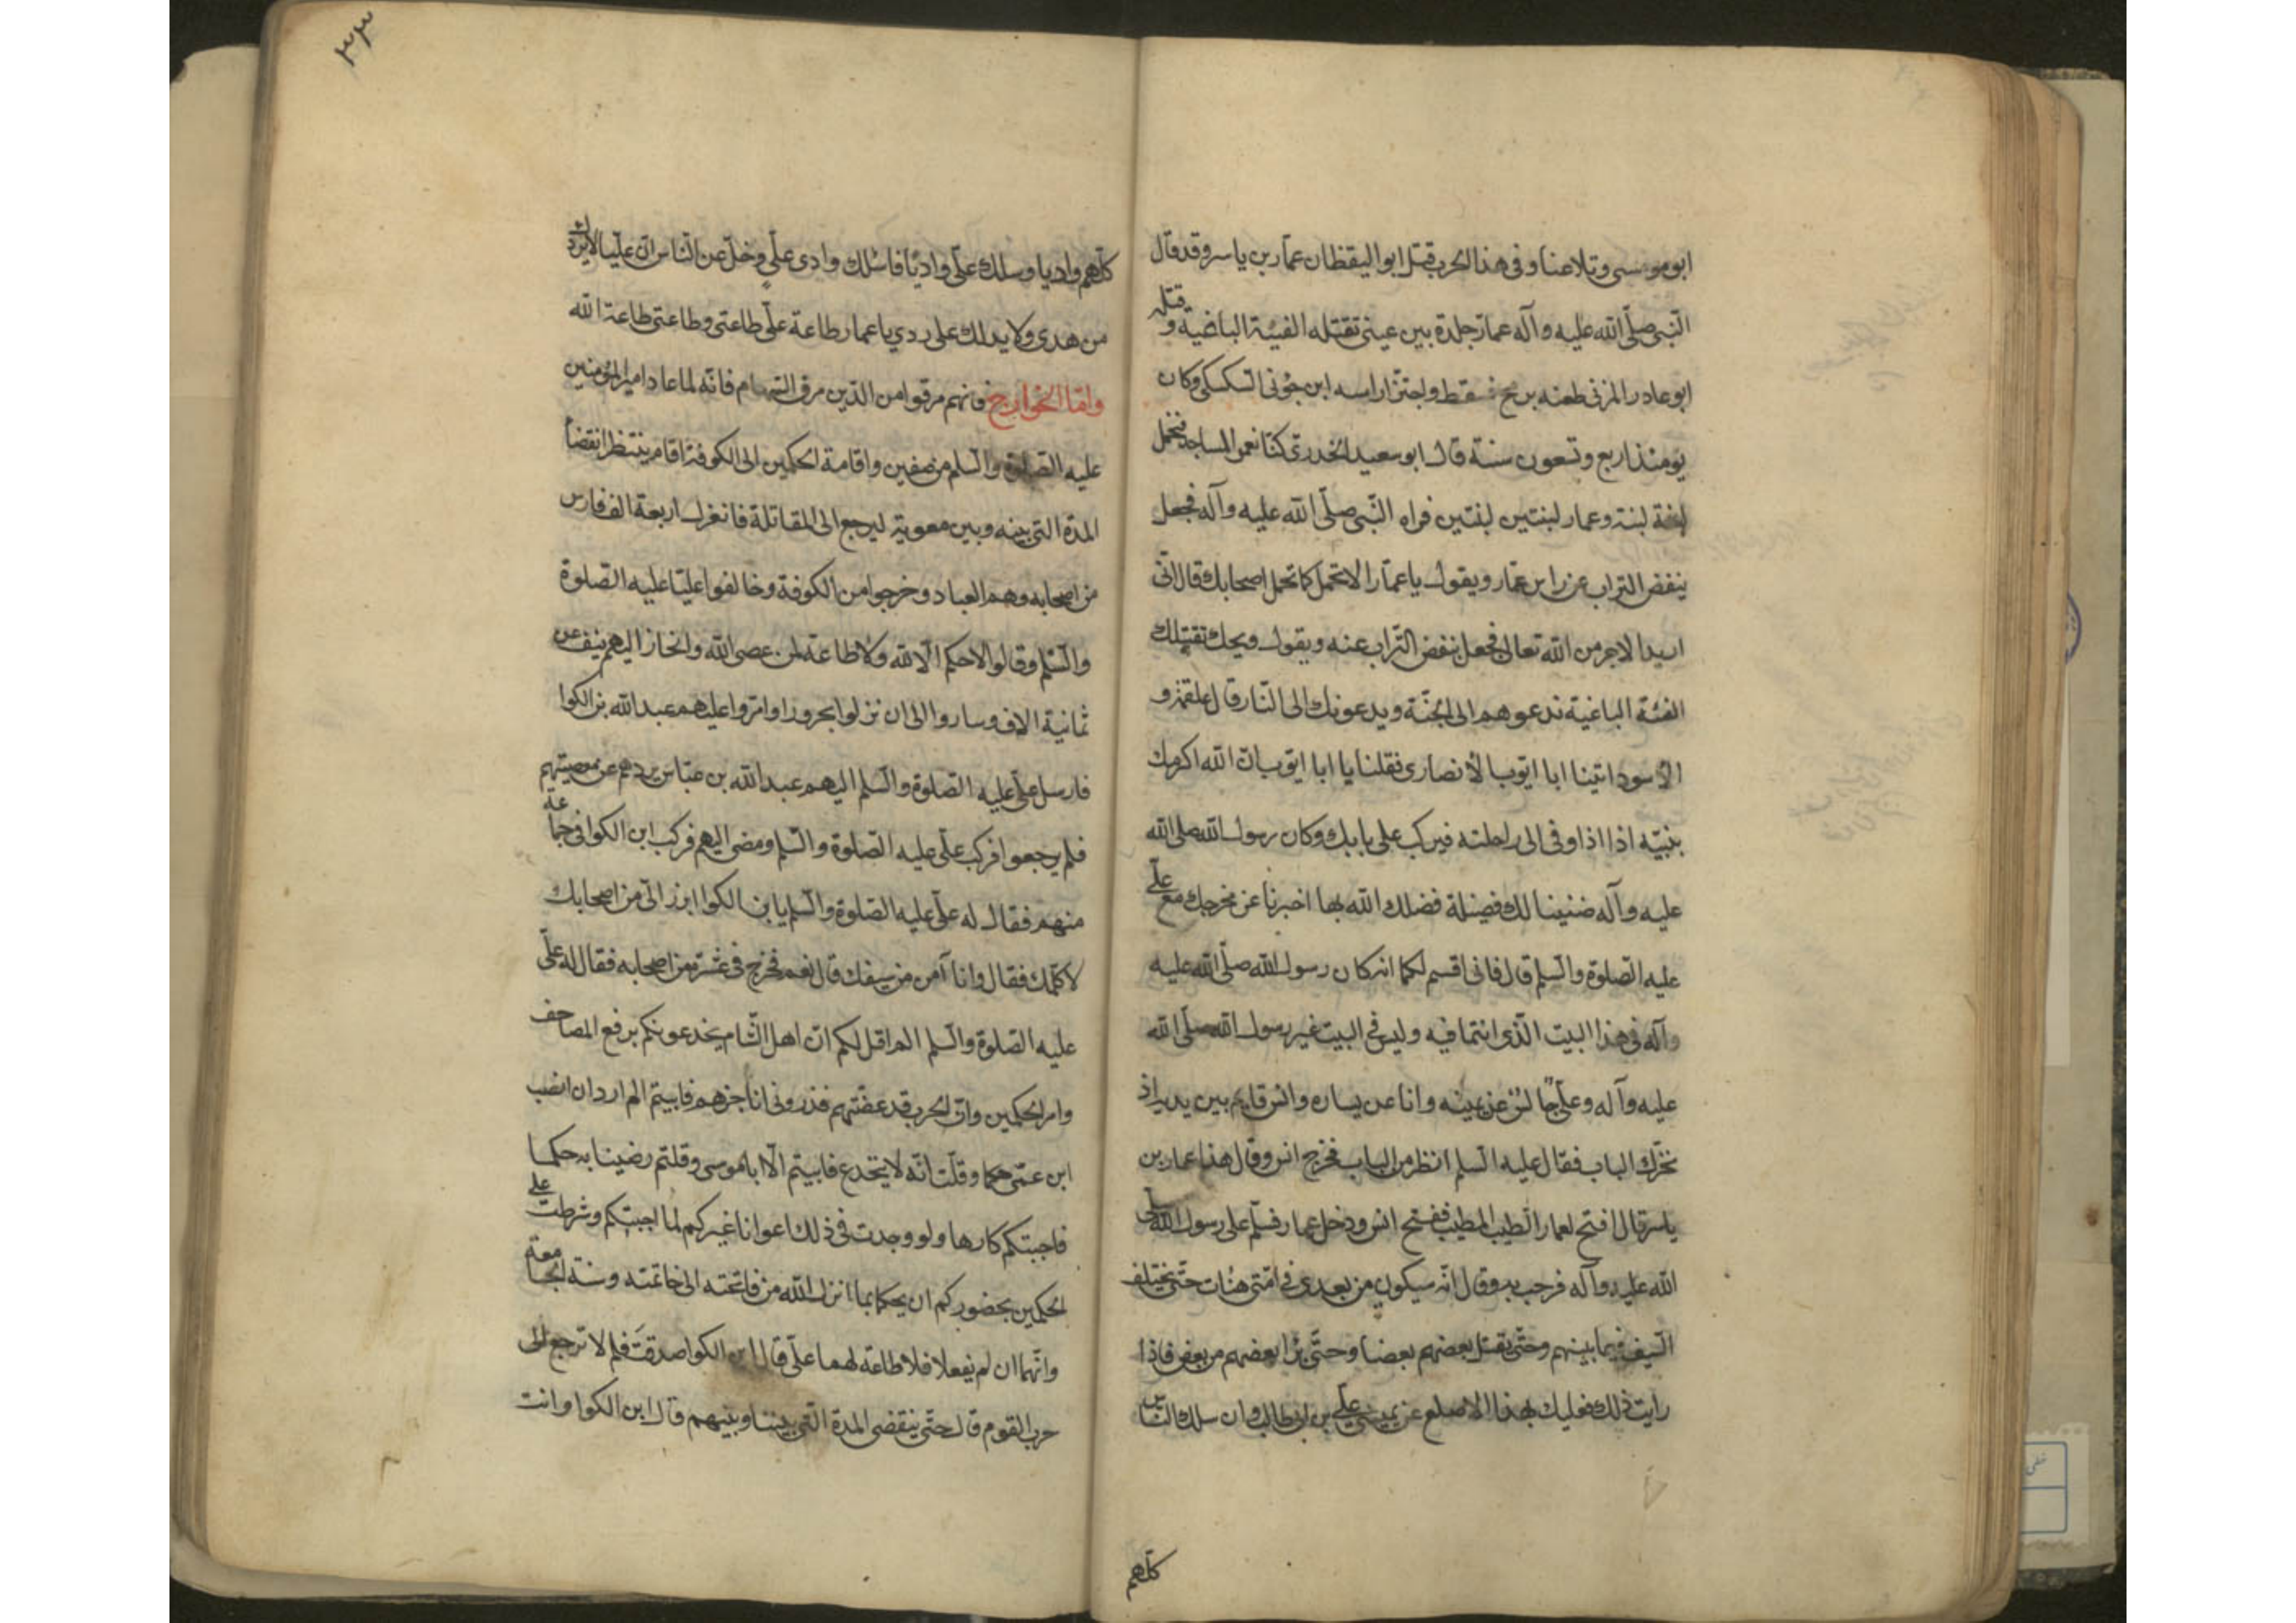 ابوموسى وتلاعنا وفى هذا الحرب قتل ابو اليقظان عمار بن ياسر وقد قال
النبى صلى الله عليه وآله عمار جلدة بين عينى تقتله الفيئة الباغية وقتله
ابو عادر المزنى طعنه برمح فسقط واجتز راسه ابن جونى السكسكى وكان
يومئذ اربع وتسعون سنة قال ابو سعيد الخدرى كنا نعمر المساجد فنحمل
لبنة لبنة وعمار لبنتين لبنتين فراه النبى صلى الله عليه وآله فجعل
ينفض التراب عن راس عمار ويقول يا عمار الا تحمل كما تحمل اصحابك قال انى
اريد الاجر من الله تعالى فجعل ينفض التراب عنه ويقول ويحك تقتلك
الفئة الباغية تدعوهم الى الجنة ويدعونك الى النار قال علقمة و
الاسود اتينا ابا ايوب الانصارى فقلنا يا ابا ايوب ان الله اكرمك
بنبيه اذا اوفى الى راحلته فبرك على بابك وكان رسول الله صلى الله
عليه وآله ضيفا لك فضيلة فضلك الله بها اخبرنا عن مخرجك مع على
عليه الصلوة والسلم قال فانى اقسم لكما انه كان رسول الله صلى الله عليه
وآله فى هذا البيت الذى انتما فيه وليس فى البيت غير رسول الله صلى الله
عليه وآله وعلى جالس عن يمينه وانا عن يساره وانس قايم بين يديه اذ
تحرك الباب فقال عليه السلم انظر من الباب فخرج انس وقال هذا عمار بن
ياسر قال افتح لعمار الطيب المطيب ففتح انس ودخل عمار فسلم على رسول الله صلى
الله عليه وآله فرحب به وقال انه سيكون من بعدى فى امتى هنات حتى يختلف
السيف فيما بينهم وحتى يقتل بعضهم بعضا وحتى يبرا بعضهم من بعض فاذا
رايت ذلك فعليك بهذا الاصلع عن يمينى على بن ابى طالب وان سلك الناس
كلهم
٣٣
كلهم واديا وسلك على واديا فاسلك وادى على وخل عن الناس ان عليا لا يردك
من هدى ولا يدلك على ردي يا عمار طاعة على طاعتى وطاعتى طاعة الله
واما الخوارج فانهم مرقوا من الدين مرق السهام فانه لما عاد امير المؤمنين
عليه الصلوة والسلم من صفين واقامة الحكمين الى الكوفة اقام ينتظر انقضا
المدة التى بينه وبين معوية ليرجع الى المقاتلة فانعزل اربعة الف فارس
من اصحابه وهم العباد وخرجوا من الكوفة وخالفوا عليا عليه الصلوة
والسلم وقالوا لا حكم الا لله ولا طاعة لمن عصى الله وانحاز اليهم نيف عن
ثمانية الاف وساروا الى ان نزلوا بحرورا وامروا عليهم عبد الله بن الكوا
فارسل على عليه الصلوة والسلم اليهم عبد الله بن عباس يردهم عن معصيتهم
فلم يرجعوا فركب على عليه الصلوة والسلم ومضى اليهم فركب ابن الكوا فى جماعة
منهم فقال له على عليه الصلوة والسلم يا بن الكوا ابرز الى من اصحابك
لاكلمك فقال وانا آمن من سيفك قال نعم فخرج فى عشرة من اصحابه فقال له على
عليه الصلوة والسلم الم اقل لكم ان اهل الشام يخدعونكم برفع المصاحف
وامر الحكمين وان الحرب قد عضتهم فذرونى اناجزهم فابيتم الم ارد ان انصب
ابن عمى حكما وقلت انه لا يخدع فابيتم الا ابا موسى وقلتم رضينا به حكما
فاجبتكم كارها ولو وجدت فى ذلك اعوانا غيركم لما اجبتكم وشرطت على
الحكمين بحضوركم ان يحكما بما انزل الله من فاتحته الى خاتمته وسنة الجامعة
وانهما ان لم يفعلا فلا طاعة لهما على قال ابن الكوا صدقت فلم لا ترجع الى
حرب القوم قال حتى ينقضى المدة التى بيننا وبينهم قال ابن الكوا وانت